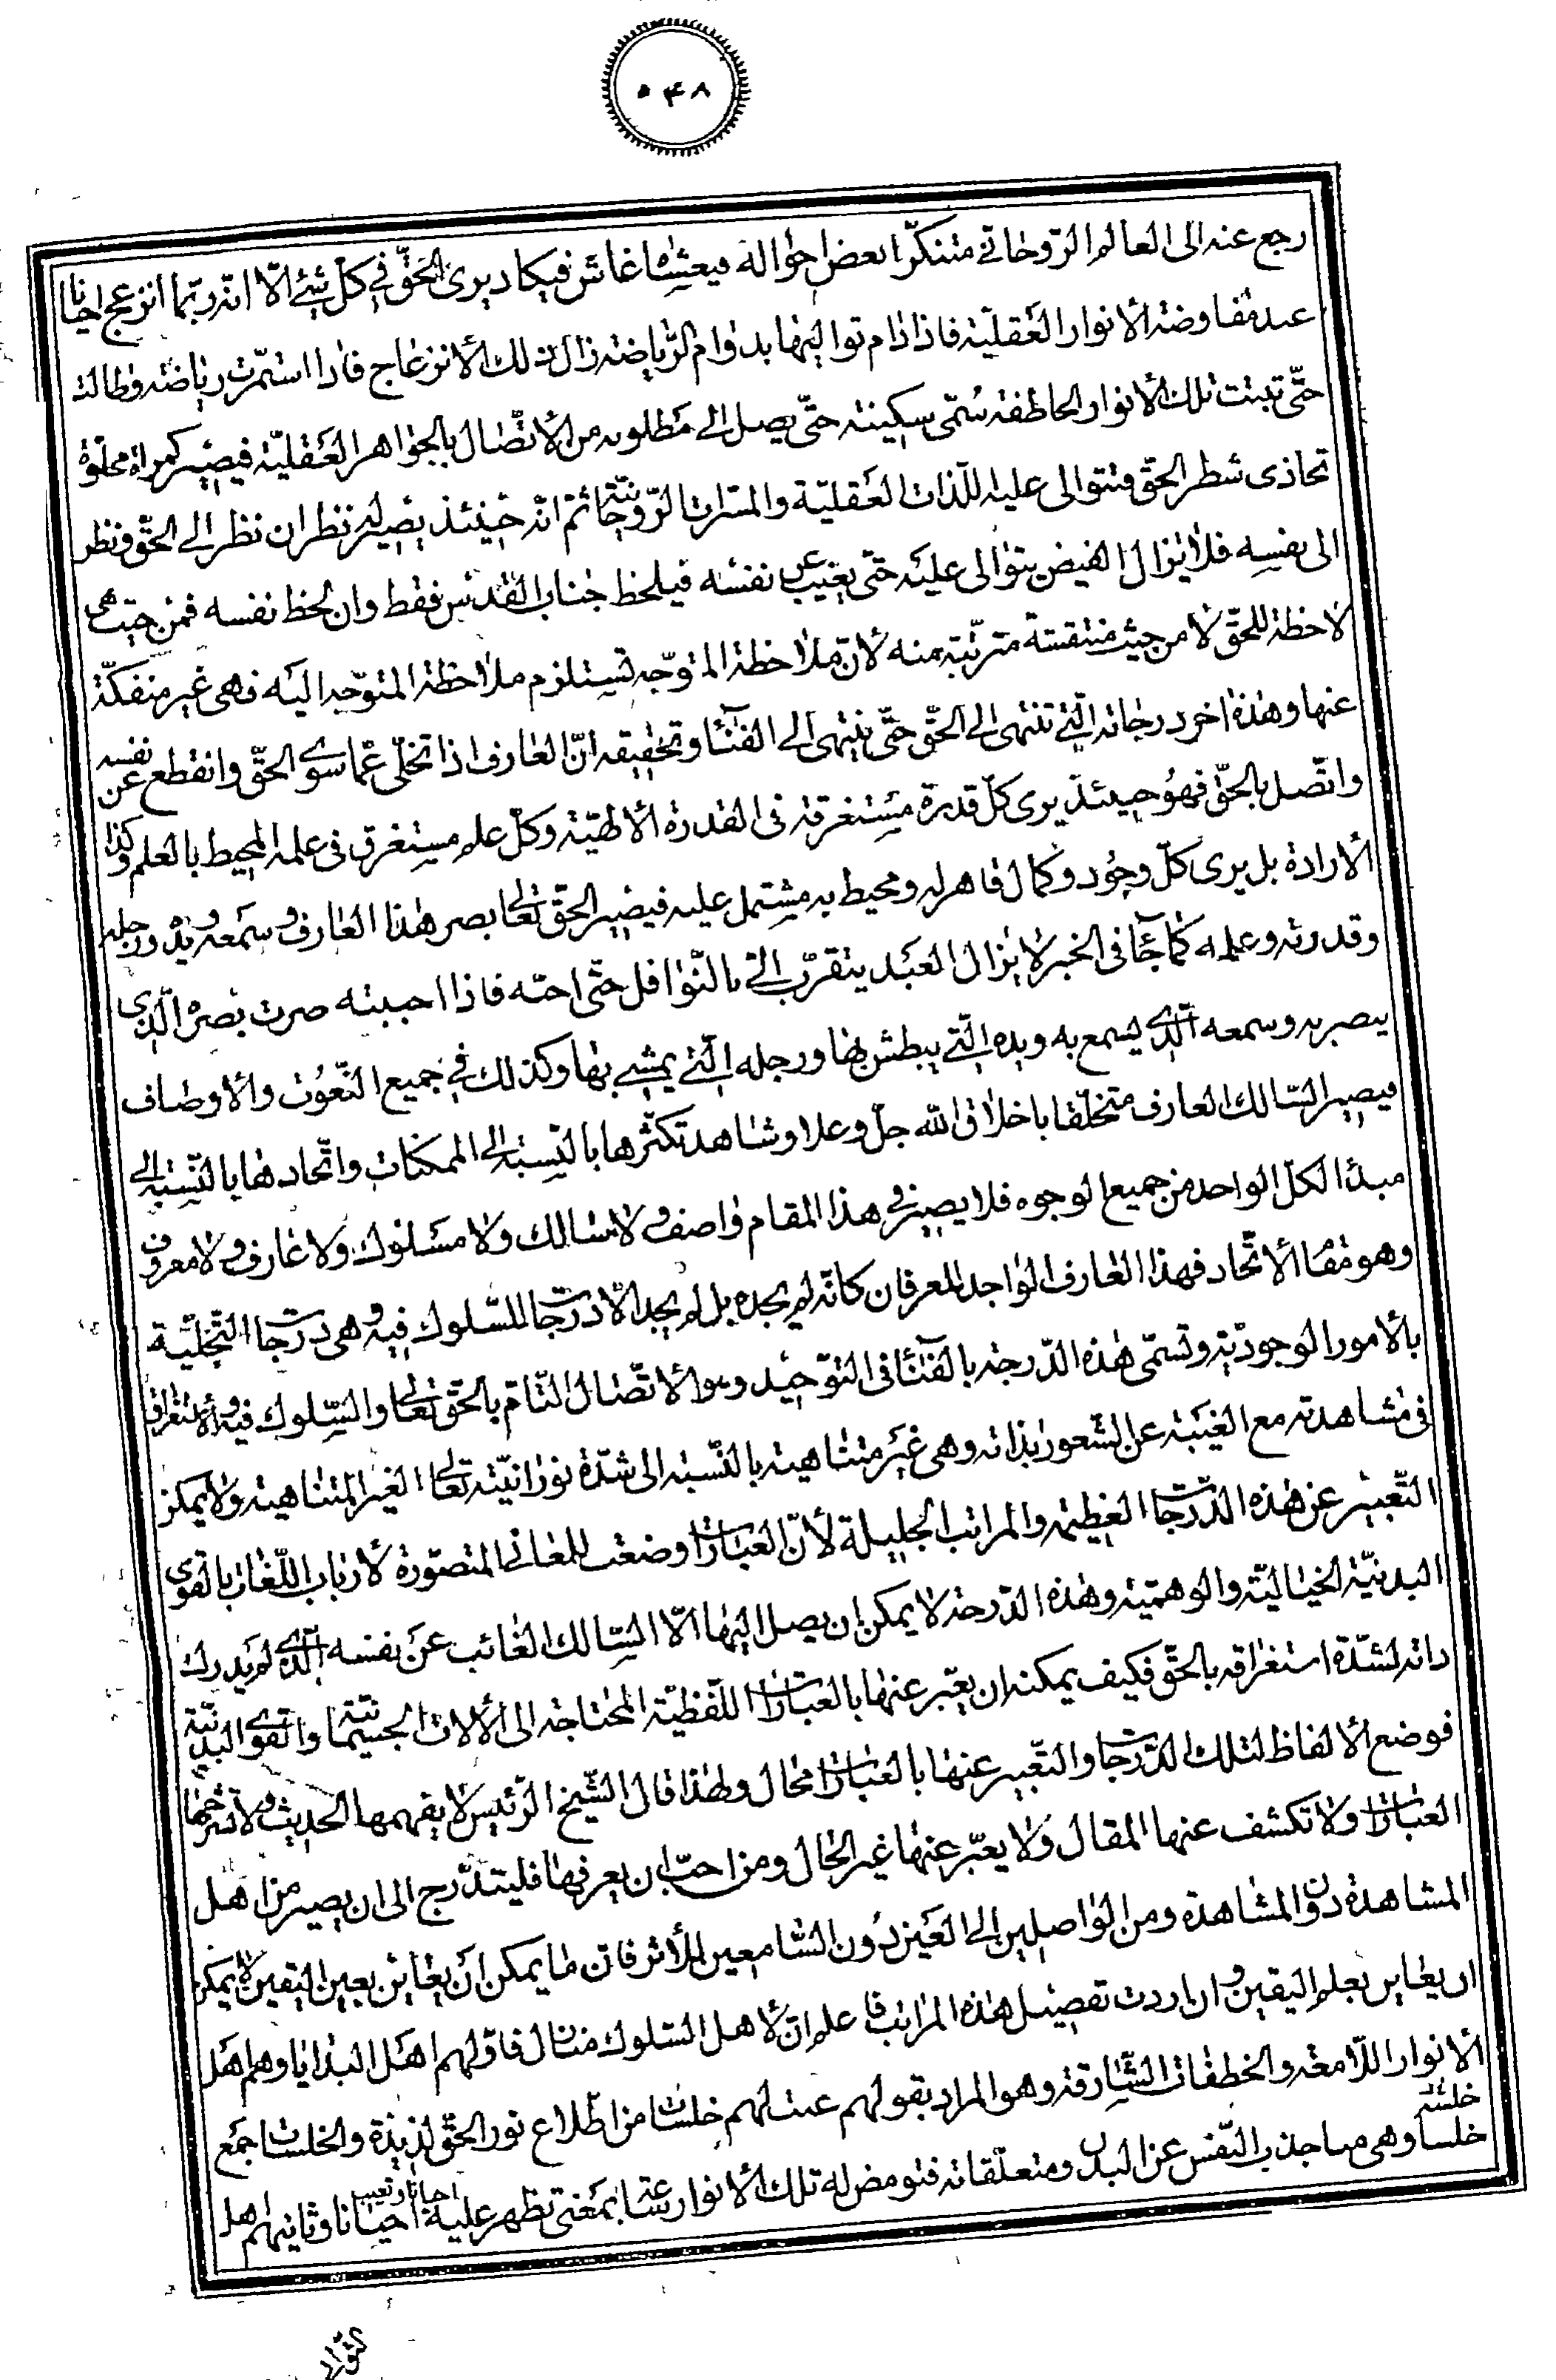 ۵۴۸
رجع عنه الى العالم الرّوحانى متنكّرا بعض احواله فيغشاه غاش فيكاد يرى الحقّ فى كلّ شىء الّا انّه ربّما انزعج احيانا
عند مفاوضة الأنوار العقليّة فاذا دام تواليها بدوام الرّياضة زال ذلك الأنزعاج فاذا استمرّت رياضته وطالت
حتّى تثبت تلك الأنوار الخاطفة سمّى سكينته حتّى يصل الى مطلوبه من الأتّصال بالجواهر العقليّة فيصير كمراة مجلوّة
تحاذى شطر الحقّ فتتوالى عليه اللّذات العقليّة والمسرّات الرّوحانيّة ثمّ انّه حينئذ يصير له نظران نظر الى الحقّ ونظر
الى نفسه فلا يزال الفيض يتوالى عليه حتّى يغيب عن نفسه فيلحظ جناب القدس فقط وان لحظ نفسه فمن حيث هى
لاحظة للحقّ لا من حيث متنقسة متربّية منه لأنّ ملاحظة المتوجّه تستلزم ملاحظة المتوجّه اليه فهى غير منفكّة
عنها وهذه اخر درجاته الّتى تنتهى الى الحقّ حتّى ينتهى الى الفناء وتحقيقه انّ العارف اذا تخلّى عمّا سوى الحقّ وانقطع عن نفسه
واتّصل بالحقّ فهو حينئذ يرى كلّ قدرة مستغرقة فى القدرة الألهيّة وكلّ علم مستغرق فى علمه المحيط بالعلم وكذا
الأرادة بل يرى كلّ وجود وكمال قاهر له ومحيط به مشتمل عليه فيصير الحقّ تعالى بصر هذا العارف وسمعه ويده ورجله
وقدرته وعلمه كما جاء فى الخبر لا يزال العبد يتقرّب الىّ بالنّوافل حتّى احبّه فاذا احببته صرت بصره الّذى
يبصر به وسمعه الّذى يسمع به ويده الّتى يبطش بها ورجله الّتى يمشى بها وكذلك فى جميع النّعوت والأوصاف
فيصير السّالك العارف متخلّقا باخلاق الله جلّ وعلا وشاهد تكثّرها بالنّسبة الى الممكنات واتّحادها بالنّسبة الى
مبدأ الكلّ الواحد من جميع الوجوه فلا يصير فى هذا المقام واصف ولا سالك ولا مسلوك ولا عارف ولا معروف
وهو مقام الأتّحاد فهذا العارف الواجد للعرفان كانّه لم يجده بل لم يجد الّا درجات للسّلوك فيه وهى درجات التّخلّية
بالأمور الوجوديّة وتسمّى هذه الدّرجة بالفناء فى التّوحيد وهو الأتّصال التّام بالحقّ تعالى والسّلوك فيه والأستغراق
فى مشاهدته مع الغيبة عن الشّعور بذاته وهى غير متناهية بالنّسبة الى شدّة نورانيّته تعالى الغير المتناهية ولا يمكن
التّعبير عن هذه الدّرجات العظيمة والمراتب الجليلة لأنّ العبارات وضعت للمعانى المتصوّرة لأرباب اللّغات بالقوى
البدنيّة الخياليّة والوهميّة وهذه الدّرجة لا يمكن ان يصل اليها الّا السّالك الغائب عن نفسه الّذى لم يدرك
ذاته لشدّة استغراقه بالحقّ فكيف يمكنه ان يعبّر عنها بالعبارات اللّفظيّة المحتاجة الى الألات الجسمانيّة والقوى البدنيّة
فوضع الألفاظ لتلك الدّرجات والتّعبير عنها بالعبارات محال ولهذا قال الشّيخ الرّئيس لا يفهمها الحديث ولا تشرحها
العبارات ولا تكشف عنها المقال ولا يعبّر عنها غير الحال ومن احبّ ان يعرفها فليتدرّج الى ان يصير من اهل
المشاهدة دون المشاهدة ومن الواصلين الى العين دون السّامعين للأثر فانّ ما يمكن ان يعاين بعين اليقين لا يمكن
ان يعاين بعلم اليقين وان اردت تفصيل هذه المراتب فاعلم انّ لأهل السّلوك منازل فاوّلهم اهل البدايا وهم اهل
الأنوار اللّامعة والخطفات الشّارقة وهو المراد بقولهم عنت لهم خلسات من اطّلاع نور الحقّ لذيذة والخلسات جمع خلسة
خلسا وهى مما جذب النّفس عن البدن ومتعلّقاته فتومض له تلك الأنوار بمعنى تظهر عليه احيانا وتغيب احيانا وثانيهم اهل